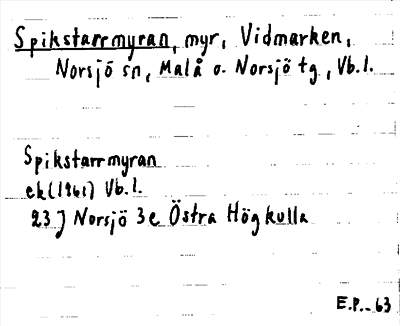 Spikstarrmyran, myr, Vidmarken,
Norsjö sn, Malå o. Norsjö tg, Vb.l.
Spikstarrmyran
ek (1961) Vb.l.
23 J Norsjö 3e Östra Högkulla
E.P.-63